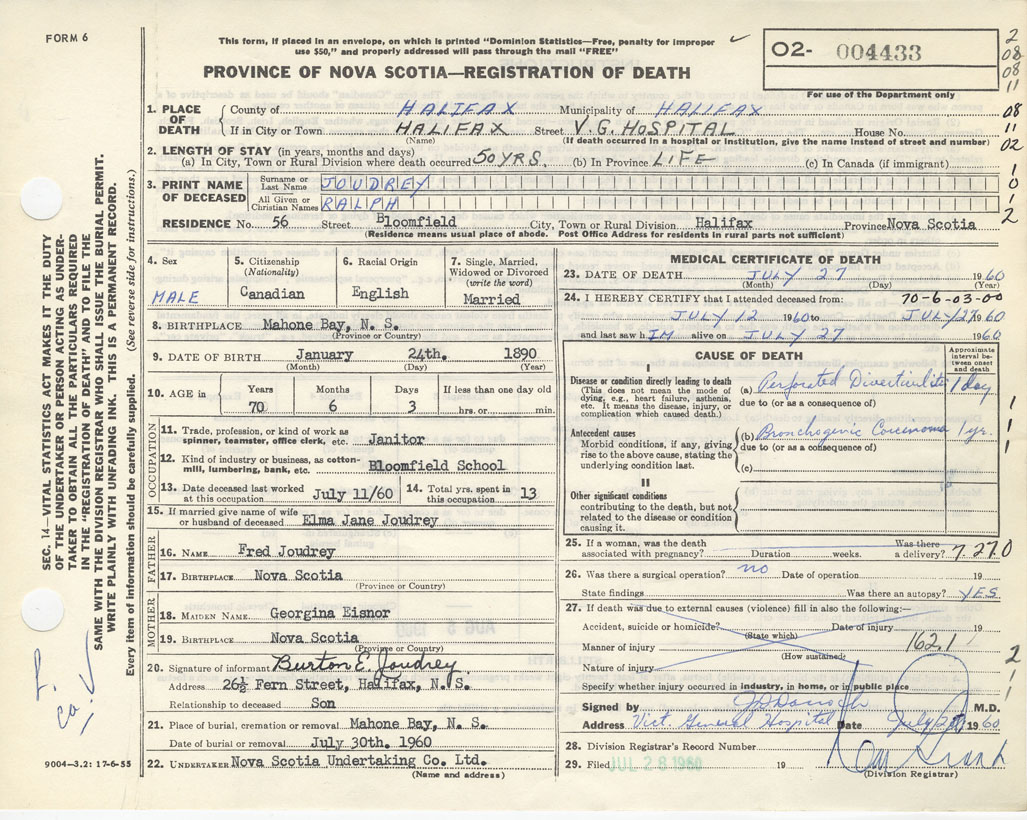 FORM 6
This form, if placed in an envelope, on which is printed "Dominion Statistics—Free, penalty for improper
use $50," and properly addressed will pass through the mail "FREE"
PROVINCE OF NOVA SCOTIA—REGISTRATION OF DEATH
O2- 004433
For use of the Department only
2
08
08
11
08
11
02
1
0
1
2
1. PLACE OF DEATH
County of HALIFAX Municipality of HALIFAX
If in City or Town HALIFAX Street V.G. HOSPITAL House No.
(Name) (If death occurred in a hospital or Institution, give the name instead of street and number)
2. LENGTH OF STAY (in years, months and days)
(a) In City, Town or Rural Division where death occurred 50 YRS. (b) In Province LIFE (c) In Canada (if immigrant)
3. PRINT NAME OF DECEASED
Surname or Last Name JOUDREY
All Given or Christian Names RALPH
RESIDENCE No. 56 Street Bloomfield City, Town or Rural Division Halifax Province Nova Scotia
(Residence means usual place of abode. Post Office Address for residents in rural parts not sufficient)
4. Sex
MALE
5. Citizenship
(Nationality)
Canadian
6. Racial Origin
English
7. Single, Married,
Widowed or Divorced
(write the word)
Married
8. BIRTHPLACE Mahone Bay, N. S.
(Province or Country)
9. DATE OF BIRTH January 24th. 1890
(Month) (Day) (Year)
10. AGE in
Years Months Days If less than one day old
70 6 3 hrs. or min.
OCCUPATION
11. Trade, profession, or kind of work as
spinner, teamster, office clerk, etc. Janitor
12. Kind of industry or business, as cotton-
mill, lumbering, bank, etc. Bloomfield School
13. Date deceased last worked
at this occupation July 11/60
14. Total yrs. spent in
this occupation 13
15. If married give name of wife
or husband of deceased Elma Jane Joudrey
FATHER
16. NAME Fred Joudrey
17. BIRTHPLACE Nova Scotia
(Province or Country)
MOTHER
18. MAIDEN NAME. Georgina Eisnor
19. BIRTHPLACE Nova Scotia
(Province or Country)
20. Signature of informant Burton E. Joudrey
Address 26½ Fern Street, Halifax, N. S.
Relationship to deceased Son
21. Place of burial, cremation or removal Mahone Bay, N. S.
Date of burial or removal July 30th. 1960
22. UNDERTAKER Nova Scotia Undertaking Co. Ltd.
(Name and address)
MEDICAL CERTIFICATE OF DEATH
23. DATE OF DEATH JULY 27 1960
(Month) (Day) (Year)
24. I HEREBY CERTIFY that I attended deceased from: 70-6-03-00
JULY 12 1960 to JULY 27 1960
and last saw h IM alive on JULY 27 1960
CAUSE OF DEATH
Approximate
interval be-
tween onset
and death
I
Disease or condition directly leading to death
(This does not mean the mode of
dying, e.g., heart failure, asthenia,
etc. It means the disease, injury, or
complication which caused death.)
(a) Perforated Diverticulitis 1 day
due to (or as a consequence of)
Antecedent causes
Morbid conditions, if any, giving
rise to the above cause, stating the
underlying condition last.
(b) Bronchogenic Carcinoma 1 yr.
due to (or as a consequence of)
(c)
II
Other significant conditions
contributing to the death, but not
related to the disease or condition
causing it.
1
1
1
25. If a woman, was the death
associated with pregnancy? Duration weeks. Was there
a delivery? 7.27.0
26. Was there a surgical operation? no Date of operation 19
State findings Was there an autopsy? YES
27. If death was due to external causes (violence) fill in also the following:—
Accident, suicide or homicide? Date of injury 19
(State which)
Manner of injury 162.1
(How sustained)
Nature of injury
Specify whether injury occurred in industry, in home, or in public place
2
1
1
Signed by M.D.
Address Vict. General Hospital Date July 1960
28. Division Registrar's Record Number
29. Filed JUL 28 1960 19
(Division Registrar)
SEC. 14—VITAL STATISTICS ACT MAKES IT THE DUTY
OF THE UNDERTAKER OR PERSON ACTING AS UNDER-
TAKER TO OBTAIN ALL THE PARTICULARS REQUIRED
IN THE "REGISTRATION OF DEATH" AND TO FILE THE
SAME WITH THE DIVISION REGISTRAR WHO SHALL ISSUE THE BURIAL PERMIT.
WRITE PLAINLY WITH UNFADING INK. THIS IS A PERMANENT RECORD.
Every item of information should be carefully supplied. (See reverse side for instructions.)
9004—3.2: 17-6-55